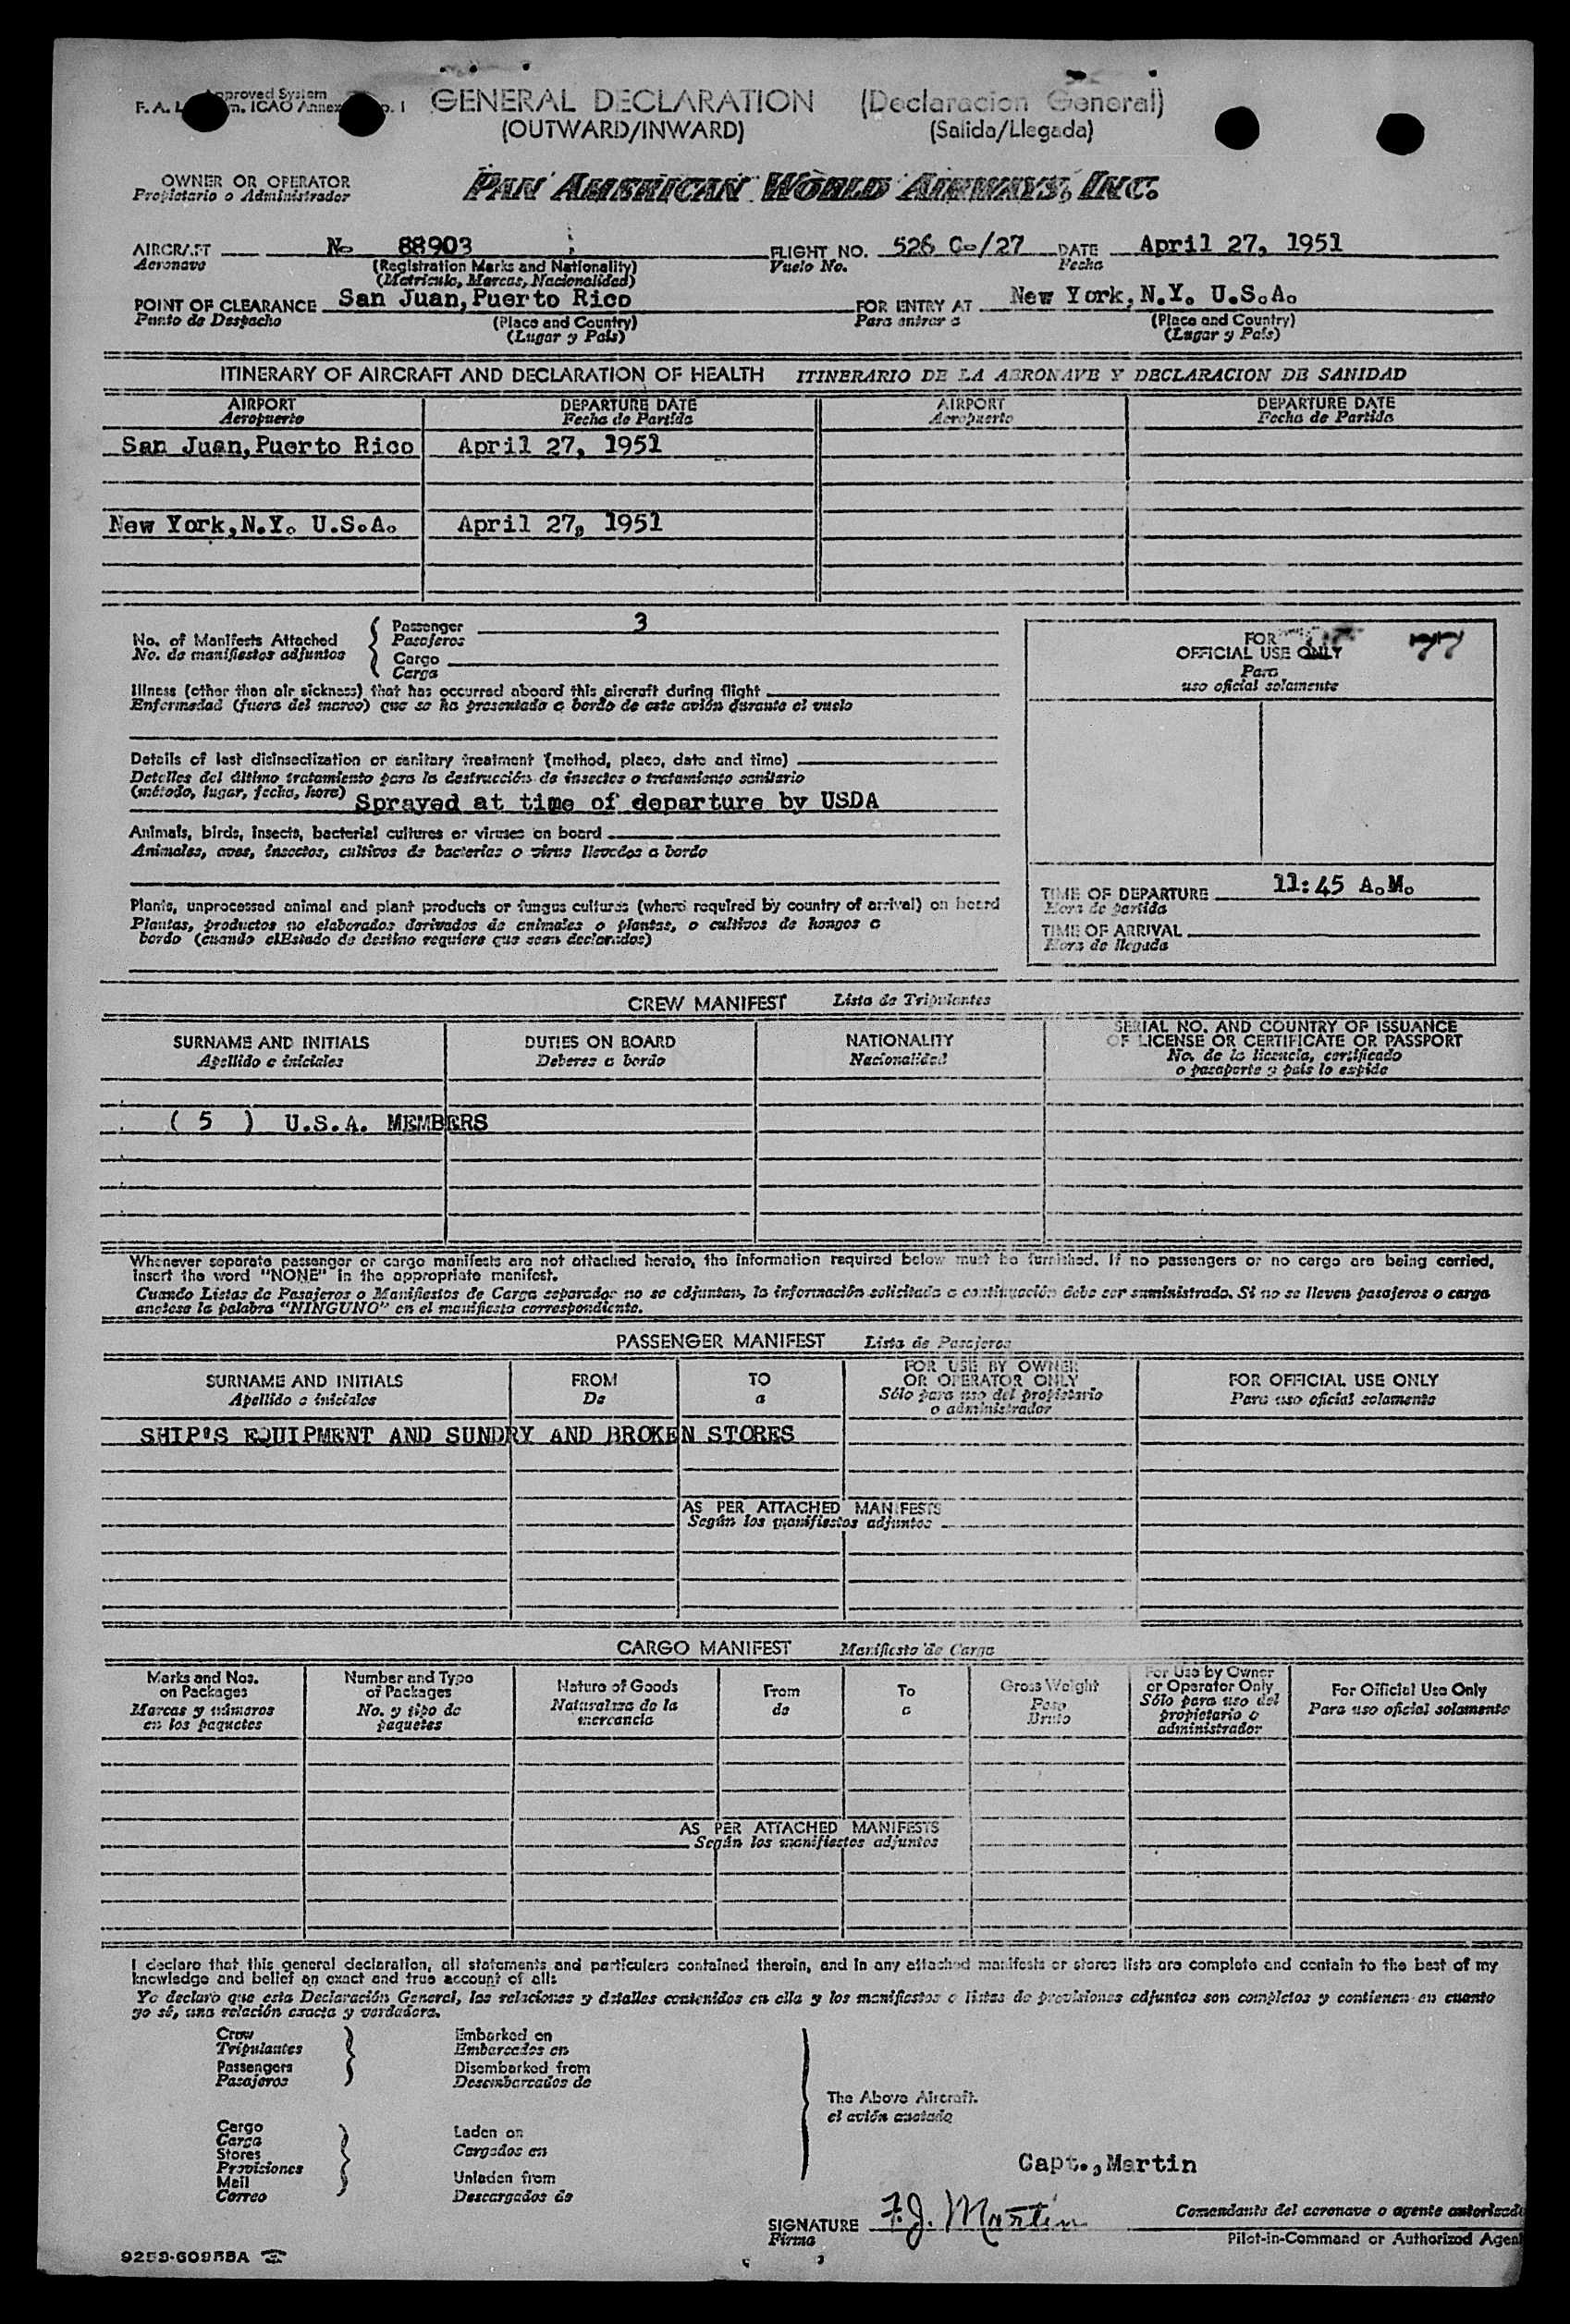 Approved System
GENERAL DECLARATION (Declaracion General)
(OUTWARD/INWARD) (Salida/Llegada)
OWNER OR OPERATOR
Propietario o Administrador
PAN AMERICAN WORLD AIRWAYS, INC.
AIRCRAFT N- 88903 FLIGHT NO. 526 C-/27 DATE April 27, 1951
Aeronave (Registration Marks and Nationality) Vuelo No. Fecha
(Matricula, Marcas, Nacionalidad)
POINT OF CLEARANCE San Juan, Puerto Rico FOR ENTRY AT New York, N.Y. U.S.A.
Punto de Despacho (Place and Country) Para entrar a (Place and Country)
(Lugar y País) (Lugar y País)
ITINERARY OF AIRCRAFT AND DECLARATION OF HEALTH ITINERARIO DE LA AERONAVE Y DECLARACION DE SANIDAD
AIRPORT DEPARTURE DATE AIRPORT DEPARTURE DATE
Aeropuerto Fecha de Partida Aeropuerto Fecha de Partida
San Juan, Puerto Rico April 27, 1951
New York, N.Y. U.S.A. April 27, 1951
No. of Manifests Attached
No. de manifiestos adjuntos
Passenger 3
Pasajeros
Cargo
Carga
Illness (other than air sickness) that has occurred aboard this aircraft during flight
Enfermedad (fuera del mareo) que se ha presentado a bordo de este avión durante el vuelo
Details of last disinsectization or sanitary treatment (method, place, date and time)
Detalles del último tratamiento para la destrucción de insectos o tratamiento sanitario
(método, lugar, fecha, hora) Sprayed at time of departure by USDA
Animals, birds, insects, bacterial cultures or viruses on board
Animales, aves, insectos, cultivos de bacterias o virus llevados a bordo
Plants, unprocessed animal and plant products or fungus cultures (where required by country of arrival) on board
Plantas, productos no elaborados derivados de animales o plantas, o cultivos de hongos a
bordo (cuando el Estado de destino requiere que sean declarados)
FOR
OFFICIAL USE ONLY 77
Para
uso oficial solamente
TIME OF DEPARTURE 11:45 A.M.
Hora de partida
TIME OF ARRIVAL
Hora de llegada
CREW MANIFEST Lista de Tripulantes
SURNAME AND INITIALS DUTIES ON BOARD NATIONALITY SERIAL NO. AND COUNTRY OF ISSUANCE
OF LICENSE OR CERTIFICATE OR PASSPORT
Apellido e iniciales Deberes a bordo Nacionalidad No. de la licencia, certificado
o pasaporte y país lo expide
( 5 ) U.S.A. MEMBERS
Whenever separate passenger or cargo manifests are not attached hereto, the information required below must be furnished. If no passengers or no cargo are being carried,
insert the word "NONE" in the appropriate manifest.
Cuando Listas de Pasajeros o Manifiestos de Carga separados no se adjuntan, la información solicitada a continuación debe ser suministrada. Si no se lleven pasajeros o carga
anotese la palabra "NINGUNO" en el manifiesto correspondiente.
PASSENGER MANIFEST Lista de Pasajeros
SURNAME AND INITIALS FROM TO FOR USE BY OWNER
OR OPERATOR ONLY FOR OFFICIAL USE ONLY
Apellido e iniciales De a Sólo para uso del propietario
o administrador Para uso oficial solamente
SHIP'S EQUIPMENT AND SUNDRY AND BROKEN STORES
AS PER ATTACHED MANIFESTS
Según los manifiestos adjuntos
CARGO MANIFEST Manifiesto de Carga
Marks and Nos.
on Packages
Marcas y números
en los paquetes
Number and Type
of Packages
No. y tipo de
paquetes
Nature of Goods
Naturaleza de la
mercancía
From
de
To
a
Gross Weight
Peso
Bruto
For Use by Owner
or Operator Only
Sólo para uso del
propietario o
administrador
For Official Use Only
Para uso oficial solamente
AS PER ATTACHED MANIFESTS
Según los manifiestos adjuntos
I declare that this general declaration, all statements and particulars contained therein, and in any attached manifests or stores lists are complete and contain to the best of my
knowledge and belief an exact and true account of all:
Yo declaro que esta Declaración General, las relaciones y detalles contenidos en ella y los manifiestos o listas de provisiones adjuntos son completos y contienen en cuanto
yo sé, una relación exacta y verdadera.
Crew
Tripulantes
Passengers
Pasajeros
Embarked on
Embarcados en
Disembarked from
Desembarcados de
Cargo
Carga
Stores
Provisiones
Mail
Correo
Laden on
Cargados en
Unladen from
Descargados de
The Above Aircraft.
el avión anotado
Capt., Martin
SIGNATURE F.J. Martin
Firma
Comandante del aeronave o agente autorizado
Pilot-in-Command or Authorized Agent